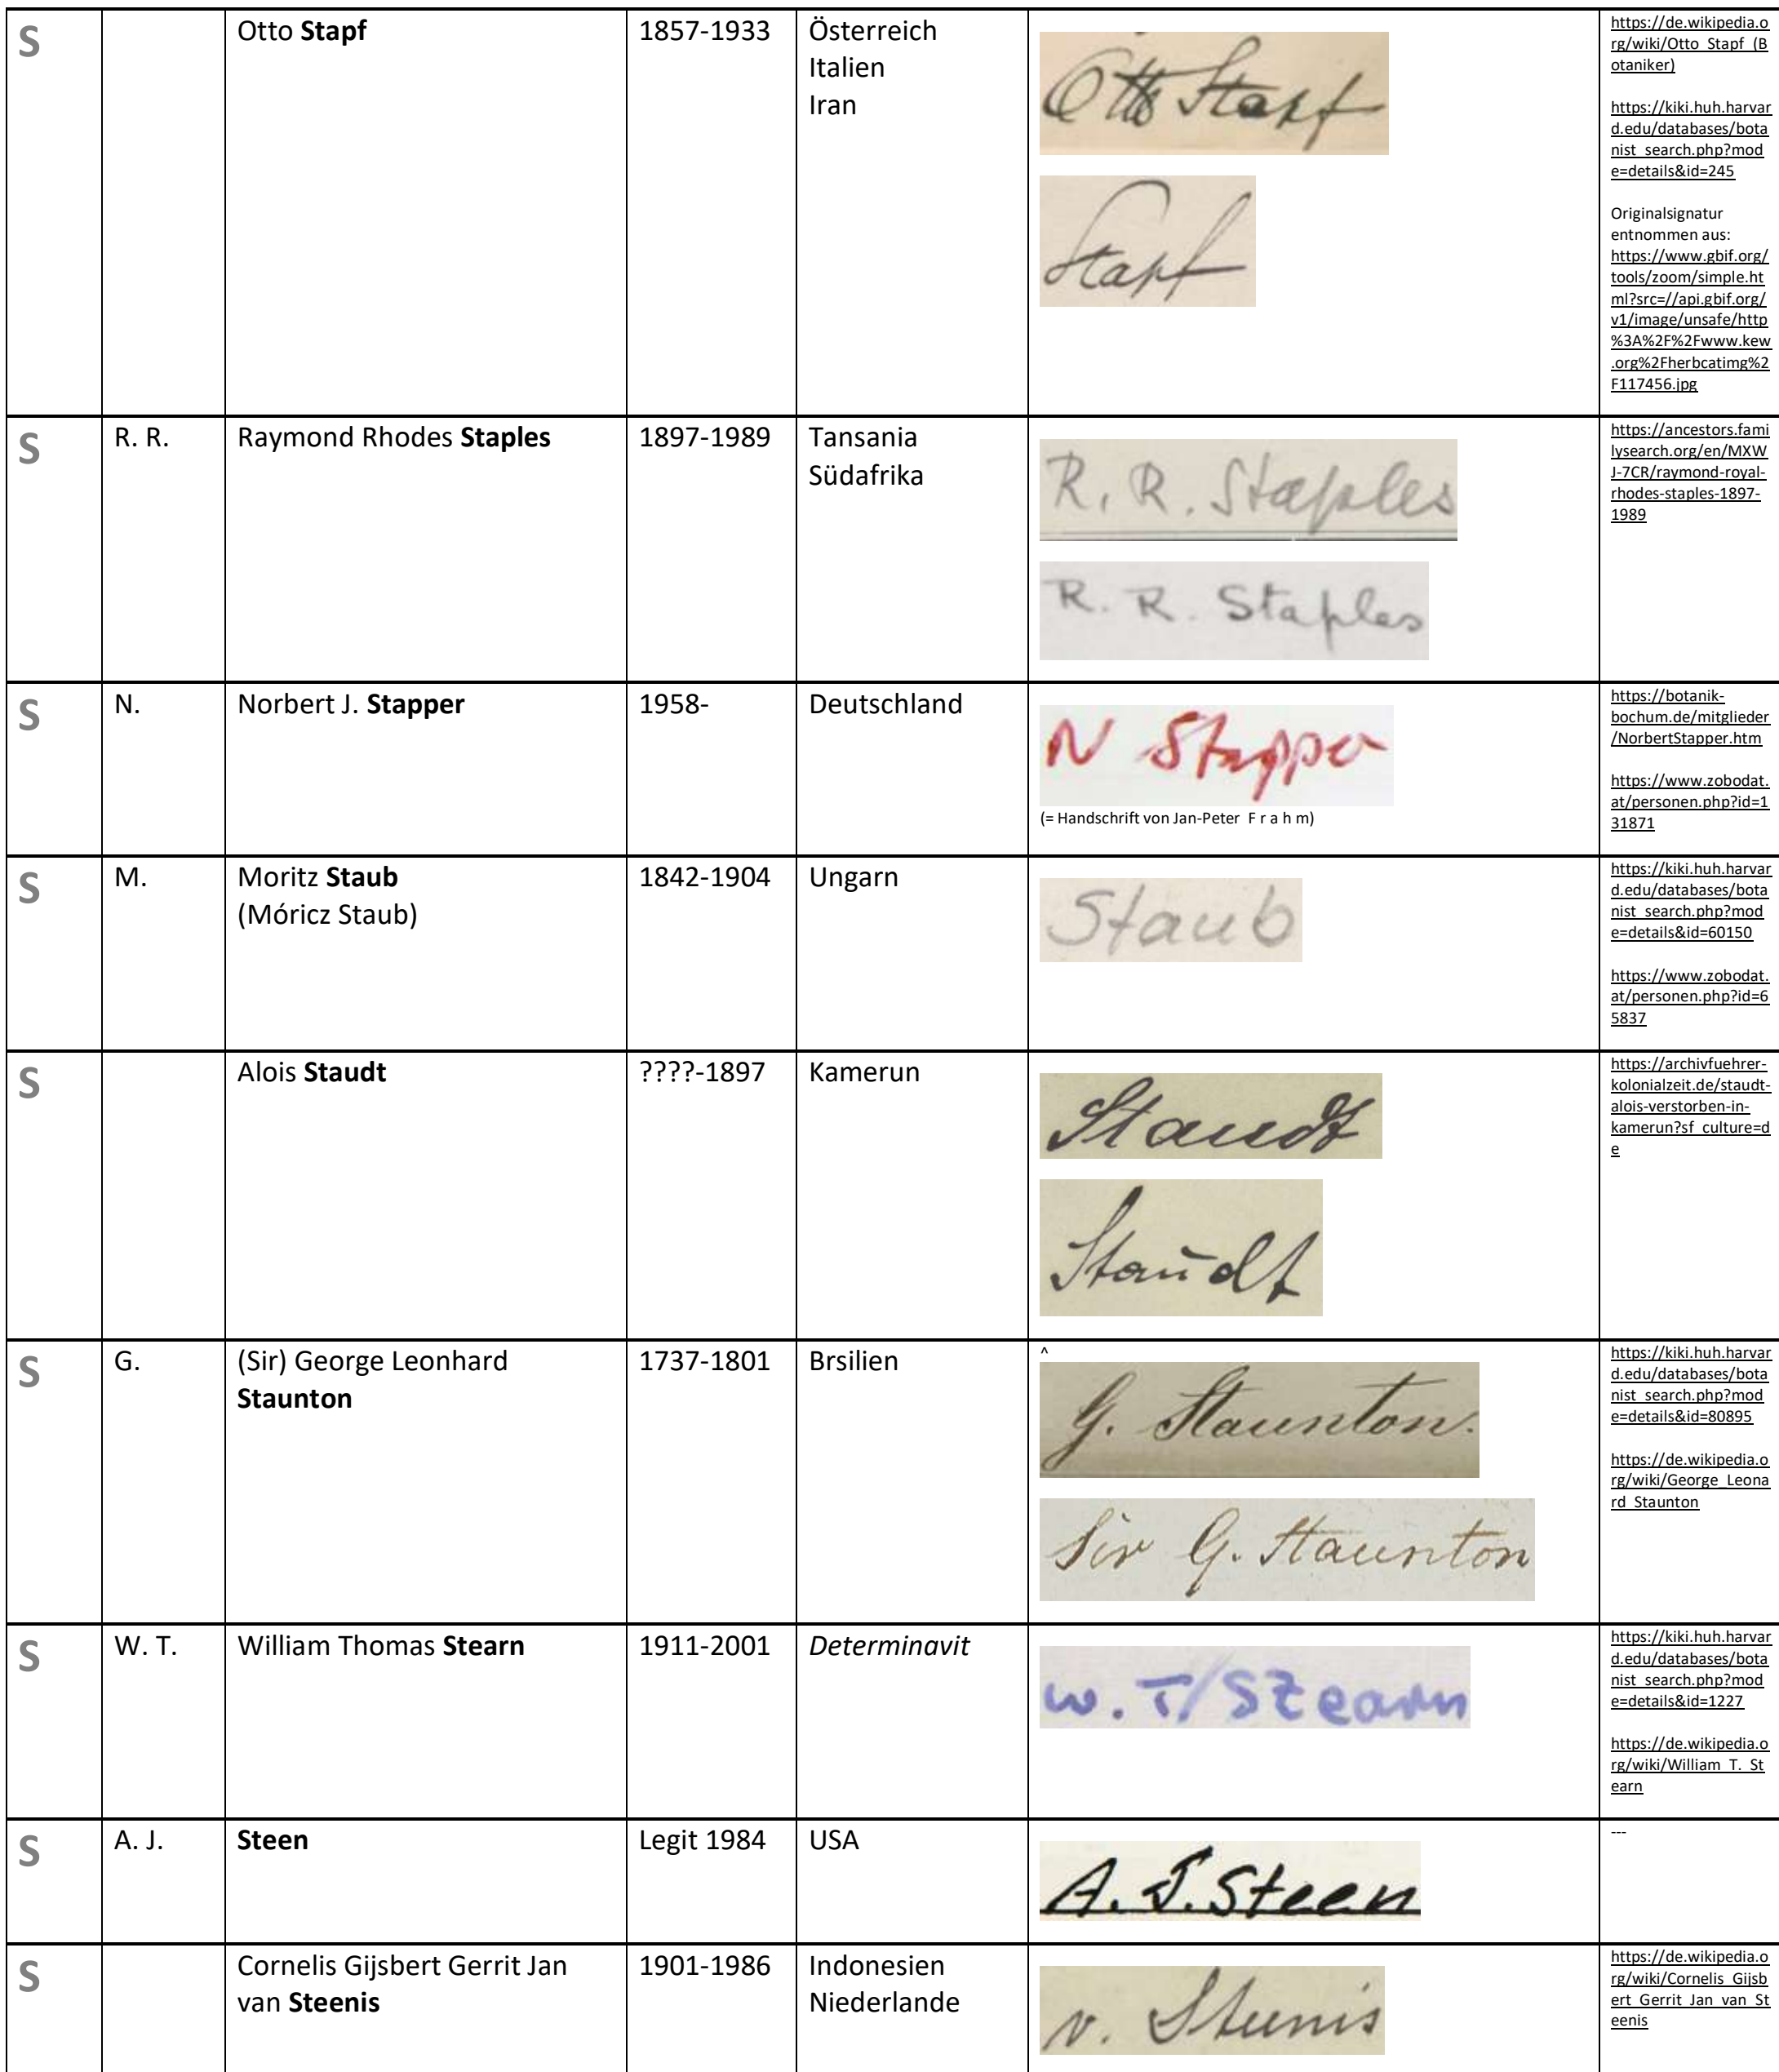 S
Otto Stapf
1857-1933
Österreich
Italien
Iran
Otto Stapf
Stapf
https://de.wikipedia.o
rg/wiki/Otto_Stapf_(B
otaniker)
https://kiki.huh.harvar
d.edu/databases/bota
nist_search.php?mod
e=details&id=245
Originalsignatur
entnommen aus:
https://www.gbif.org/
tools/zoom/simple.ht
ml?src=//api.gbif.org/
v1/image/unsafe/http
%3A%2F%2Fwww.kew
.org%2Fherbcatimg%2
F117456.jpg
S
R. R.
Raymond Rhodes Staples
1897-1989
Tansania
Südafrika
R. R. Staples
R. R. Staples
https://ancestors.fami
lysearch.org/en/MXW
J-7CR/raymond-royal-
rhodes-staples-1897-
1989
S
N.
Norbert J. Stapper
1958-
Deutschland
N Stapper
(= Handschrift von Jan-Peter F r a h m)
https://botanik-
bochum.de/mitglieder
/NorbertStapper.htm
https://www.zobodat.
at/personen.php?id=1
31871
S
M.
Moritz Staub
(Móricz Staub)
1842-1904
Ungarn
Staub
https://kiki.huh.harvar
d.edu/databases/bota
nist_search.php?mod
e=details&id=60150
https://www.zobodat.
at/personen.php?id=6
5837
S
Alois Staudt
????-1897
Kamerun
Staudt
Staudt
https://archivfuehrer-
kolonialzeit.de/staudt-
alois-verstorben-in-
kamerun?sf_culture=d
e
S
G.
(Sir) George Leonhard
Staunton
1737-1801
Brsilien
^
G. Staunton.
Sir G. Staunton
https://kiki.huh.harvar
d.edu/databases/bota
nist_search.php?mod
e=details&id=80895
https://de.wikipedia.o
rg/wiki/George_Leona
rd_Staunton
S
W. T.
William Thomas Stearn
1911-2001
Determinavit
W. T/ Stearn
https://kiki.huh.harvar
d.edu/databases/bota
nist_search.php?mod
e=details&id=1227
https://de.wikipedia.o
rg/wiki/William_T._St
earn
S
A. J.
Steen
Legit 1984
USA
A. J. Steen
---
S
Cornelis Gijsbert Gerrit Jan
van Steenis
1901-1986
Indonesien
Niederlande
v. Steenis
https://de.wikipedia.o
rg/wiki/Cornelis_Gijsb
ert_Gerrit_Jan_van_St
eenis